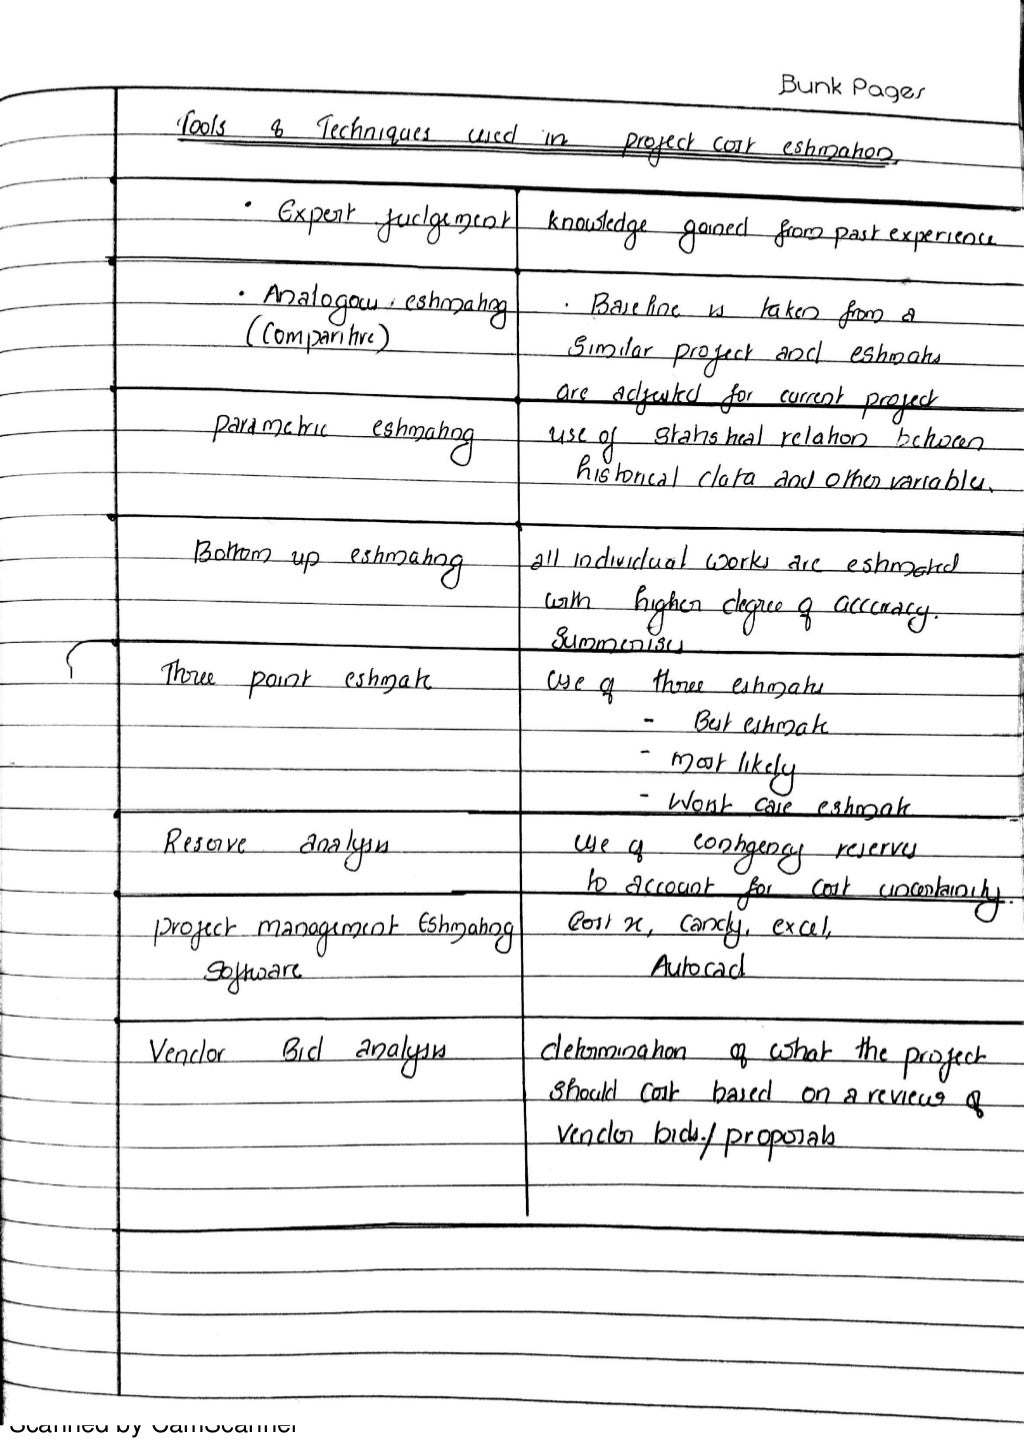 Bunk Pages
Tools & Techniques used in project cost estimation.
• Expert judgement
knowledge gained from past experience
• Analogous estimating
(Comparitive)
• Baseline is taken from a
similar project and estimats
are adjusted for current project
parametric estimating
use of statistical relation between
historical data and other variables.
Bottom up estimating
all individual works are estimated
with higher degree of acccuracy.
Summerises
Three point estimate
use of three estimats
- Best estimate
- most likely
- Worst case estimate
Reserve analysis
use of contigency reserves
to account for cost uncertainity.
project management Estimating
software
Cost x, Candy, excel,
Autocad
Vendor Bid analysis
determination of what the project
should cost based on a review of
vendor bids./proposals
Scanned by CamScanner